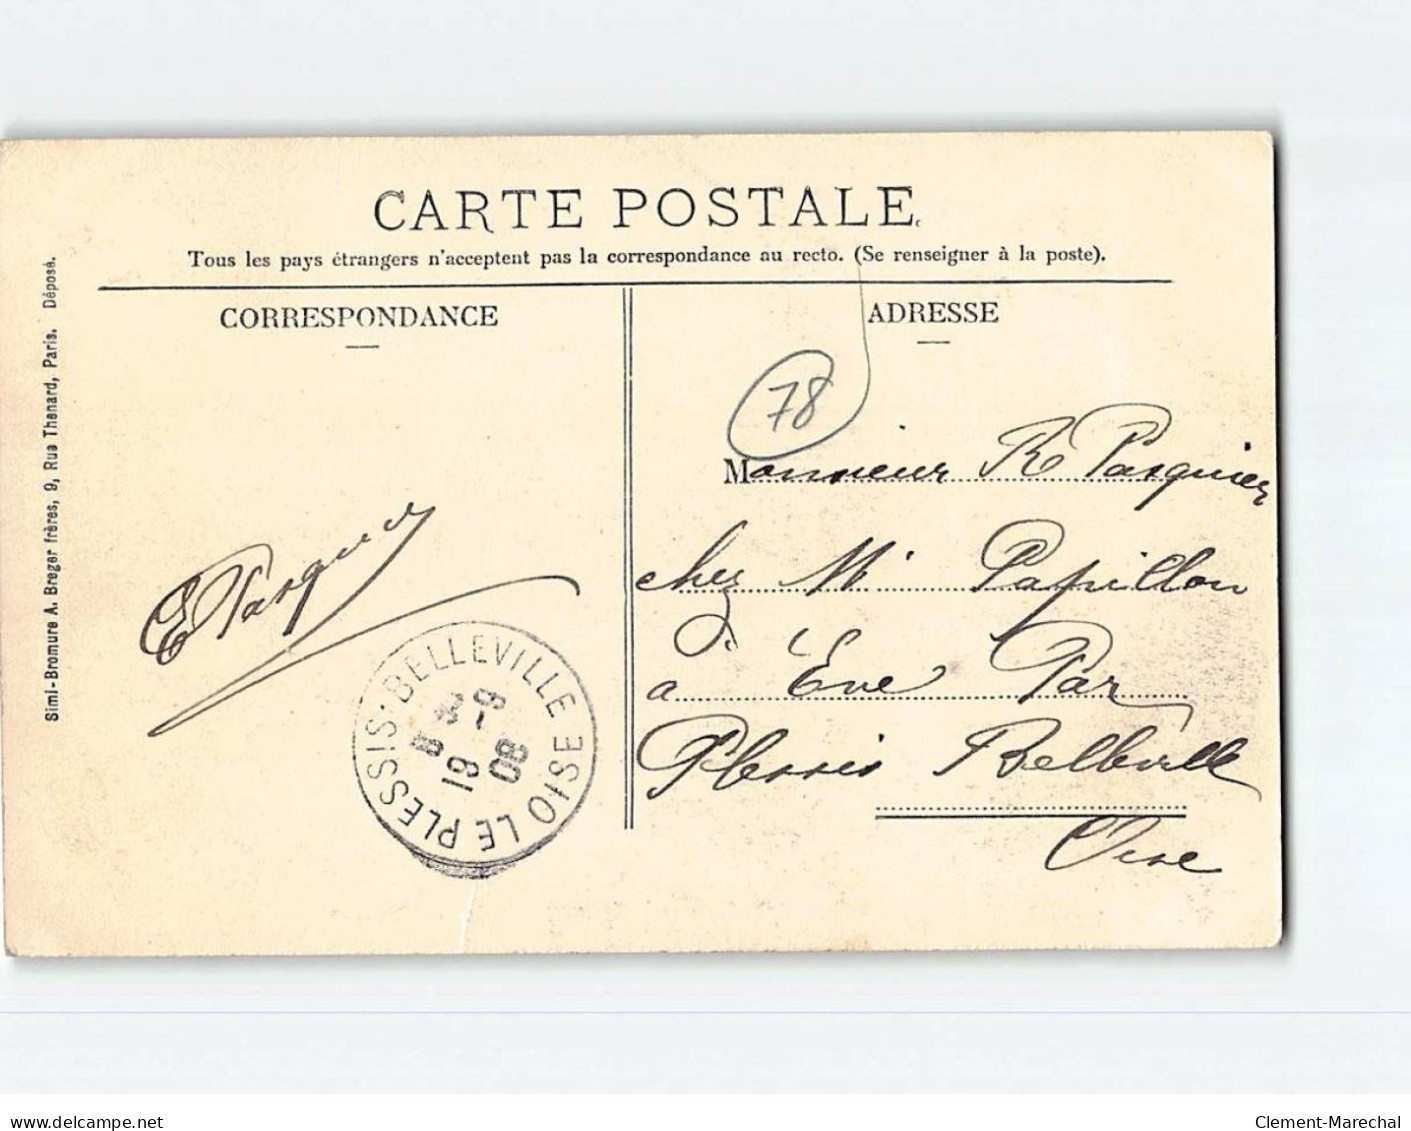 CARTE POSTALE
Tous les pays étrangers n'acceptent pas la correspondance au recto. (Se renseigner à la poste).
CORRESPONDANCE
ADRESSE
Simi-Bromure A. Breger frères, 9, Rue Thenard, Paris. Déposé.
78
Monsieur R Pasquier
chez Mr Papillon
à Eve Par
Plessis Belleville
Oise
E Pasquier
LE PLESSIS-BELLEVILLE OISE
8 -9
19 08
delcampe.net
Clement-Marechal